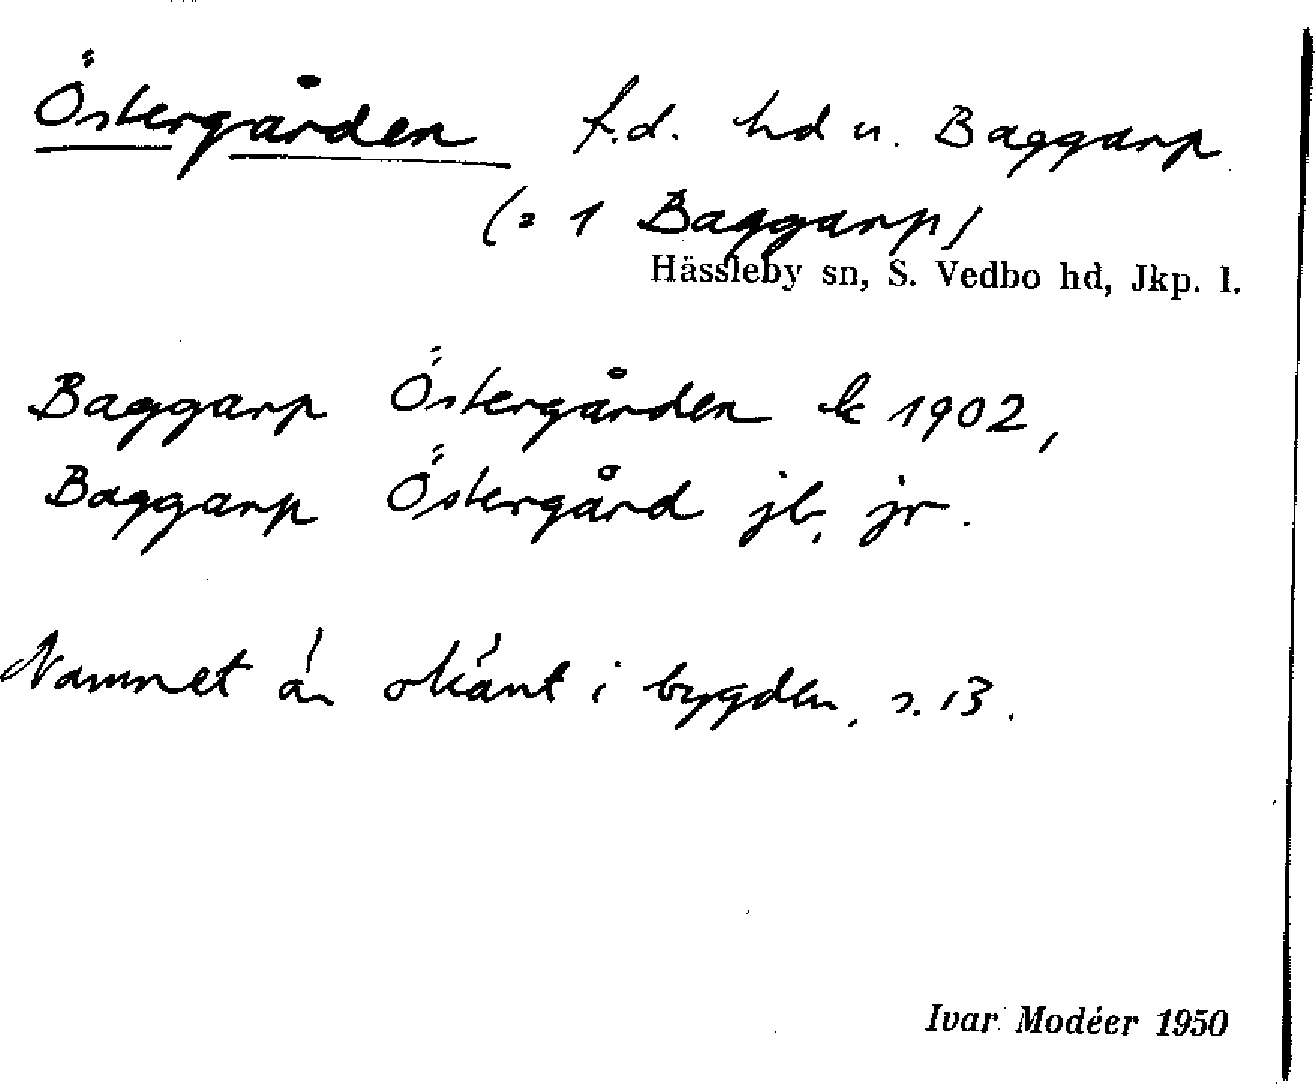 Östergården f.d. hd u. Baggarp
(= 1 Baggarp)
Hässleby sn, S. Vedbo hd, Jkp. l.
Baggarp Östergården k 1902,
Baggarp Östergård jb, jr.
Namnet är okänt i bygden, s. 13.
Ivar Modéer 1950